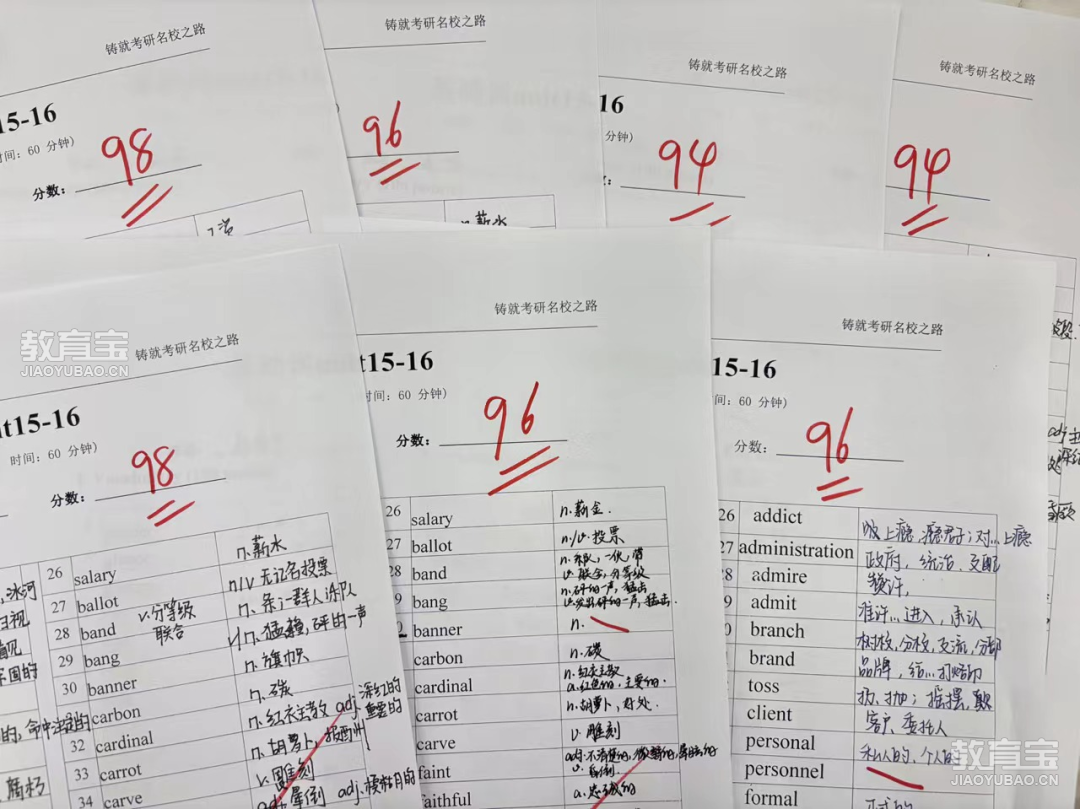 铸就考研名校之路
15-16
时间：60 分钟）
分数：
98
铸就考研名校之路
96
n.薪水
铸就考研名校之路
16
分钟）
94
铸就考研名校之路
94
教育宝
JIAOYUBAO.CN
铸就考研名校之路
t15-16
时间：60 分钟）
分数：
98
冰河
26 salary n.薪水
27 ballot n/v 无记名投票
28 band v.分等级 联合 n.条;一群人;乐队
29 bang
30 banner n.旗帜
carbon n.碳
32 cardinal n.红衣主教 adj 深红的
33 carrot n.胡萝卜
34 carve v.雕刻
铸就考研名校之路
t15-16
时间：60 分钟）
分数：
96
26 salary n.薪金.
27 ballot n./v.投票
28 band
bang
banner n.
carbon n.碳
cardinal n.红衣主教
carrot n.胡萝卜
carve v.雕刻
faint
faithful a.忠诚的
铸就考研名校之路
15-16
间：60 分钟）
分数：
96
26 addict
27 administration 政府，统治，支配
admire 赞许，
admit 准许，进入，承认
branch 树枝，分枝，支流，分部
brand 品牌，
toss 扔，抛；摇摆，
client 客户，委托人
personal 私人的，个人的
personnel
formal 正式的
教育宝
JIAOYUBAO.CN